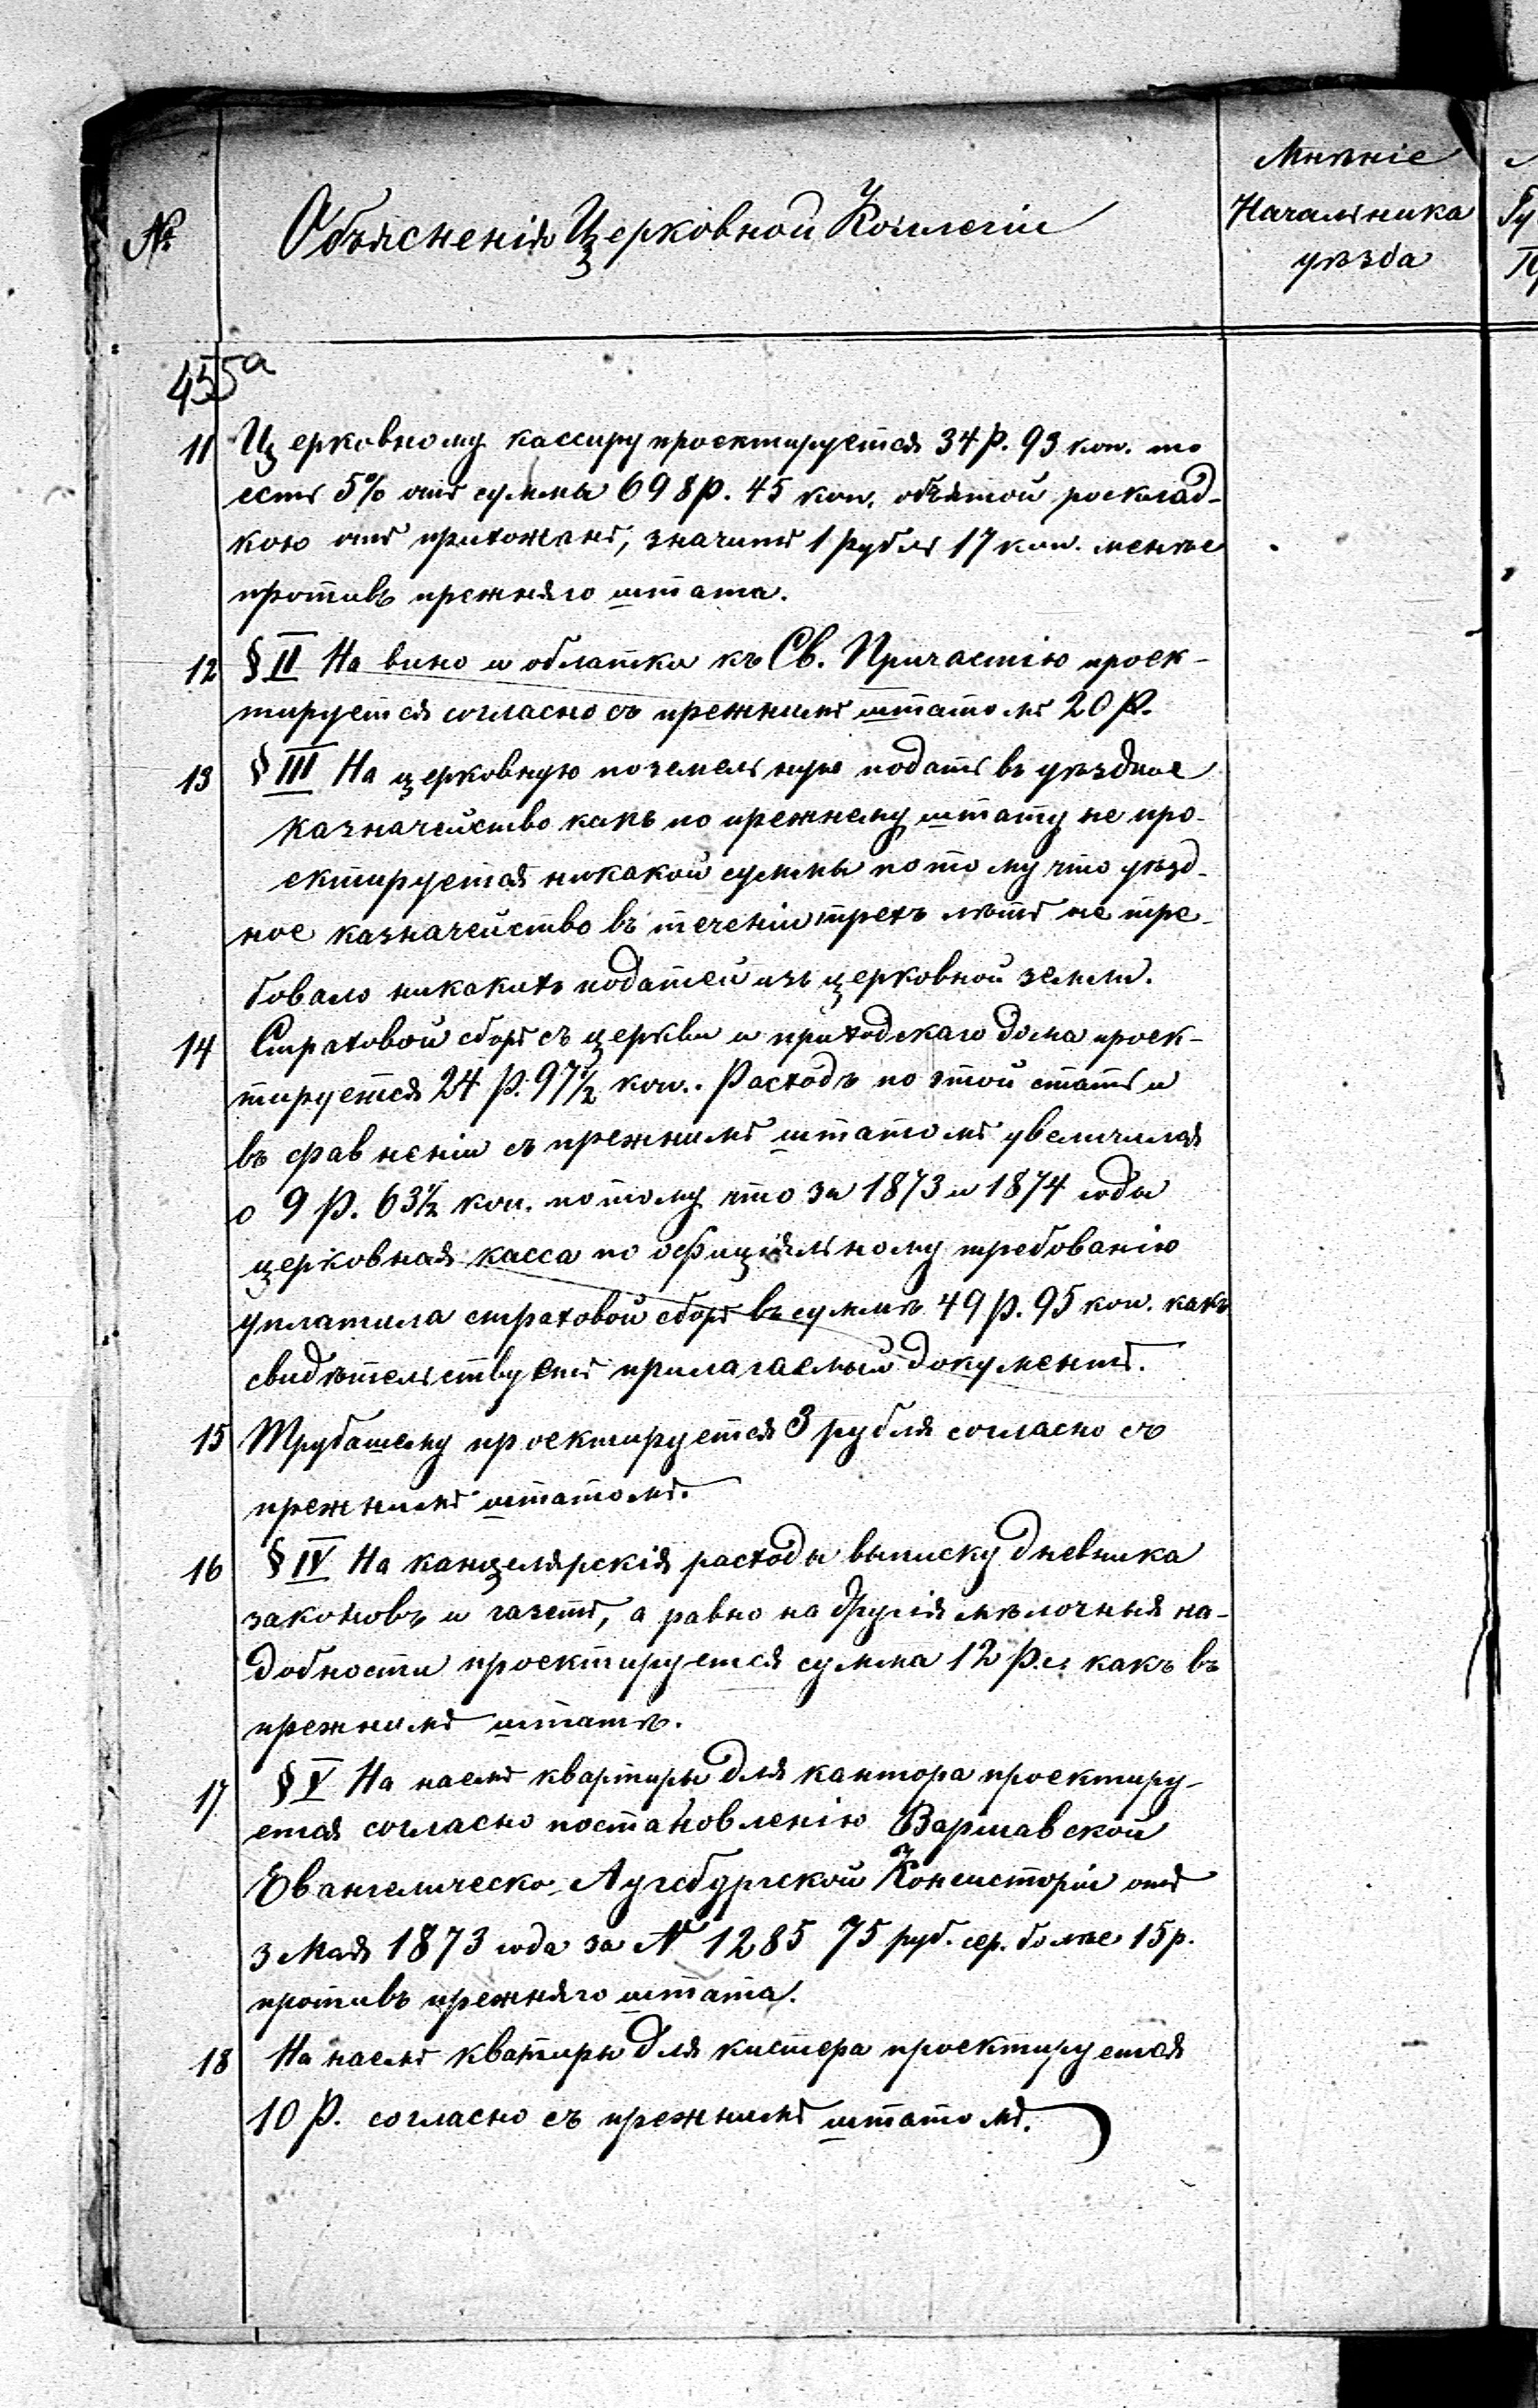 №
Объясненія Церковной Коллегіи
Мнѣніе
Начальника
уѣзда
455а
11 Церковному кассиру проектируется 34 р. 93 коп. то
есть 5% отъ суммы 698 р. 45 коп. объятой росклад-
кою отъ прихожанъ, значитъ 1 рубль 17 коп. менѣе
противъ прежняго штата.
12 § II На вино и облатки къ Св. Причастію проек-
тируется согласно съ прежнимъ штатомъ 20 р.
13 § III На церковную поземельную подать въ уѣздное
казначейство какъ по прежнему штату не про-
ектируется никакой суммы потому что уѣзд-
ное казначейство въ теченіи трехъ лѣтъ не тре-
бовало никакихъ податей изъ церковной земли.
14 Страховой сборъ съ церкви и приходскаго дома проек-
тируется 24 р. 97½ коп.. Расходъ по этой статьи
въ сравненіи съ прежнимъ штатомъ увеличился
о 9 р. 63½ коп. потому что за 1873 и 1874 годы
церковная касса по офиціяльному требованію
уплатила страховой сборъ въ суммѣ 49 р. 95 коп. какъ
свидѣтельствуетъ прилагаемый документъ.
15 Трубашему проектируется 3 рубля согласно съ
прежнимъ штатомъ.
16 § IV На канцелярскія расходы выписку Дневника
законовъ и газетъ, а равно на другія мѣлочныя на-
добности проектируется сумма 12 р.с. какъ въ
прежнимъ штатѣ.
17 § V На наемъ квартиры для кантора проектиру-
ется согласно постановленію Варшавской
Евангелическо-Аугсбургской Консисторіи отъ
3 Мая 1873 года за № 1285 75 руб. сер. болѣе 15 р.
противъ прежняго штата.
18 На наемъ кватиры для кистера проектируется
10 р. согласно съ прежнимъ штатомъ.